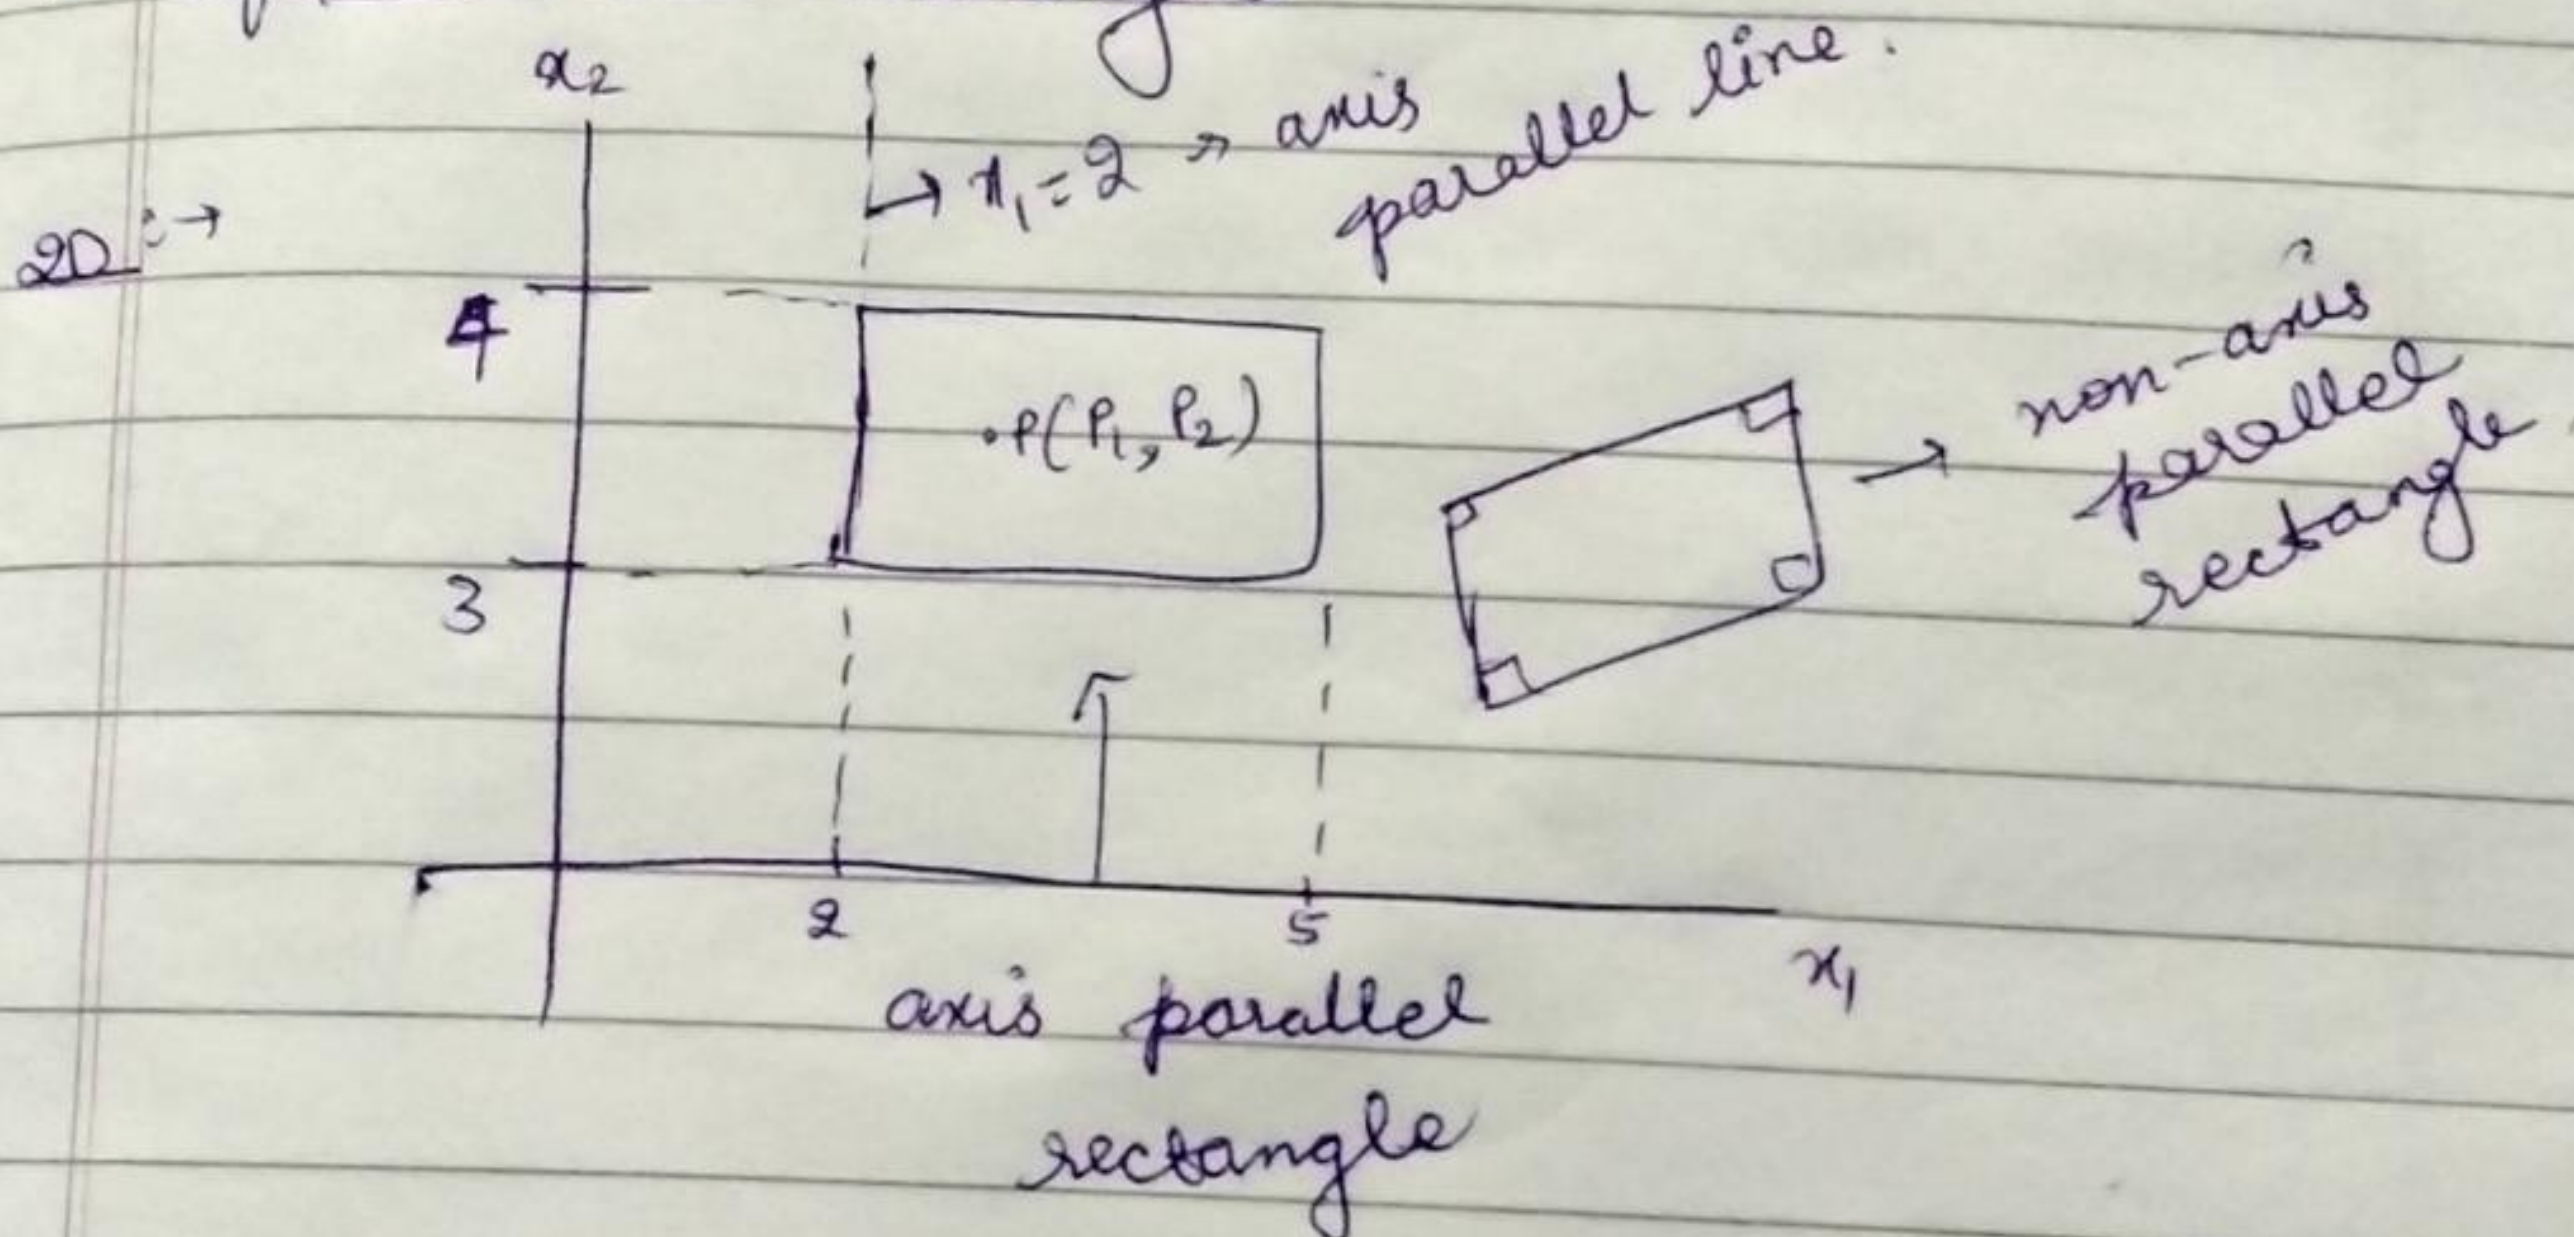 x₂
→ x₁ = 2 → axis
parallel line.
2D :→
4
.P(P₁, P₂)
non-axis
parallel
rectangle
3
2
5
x₁
axis parallel
rectangle